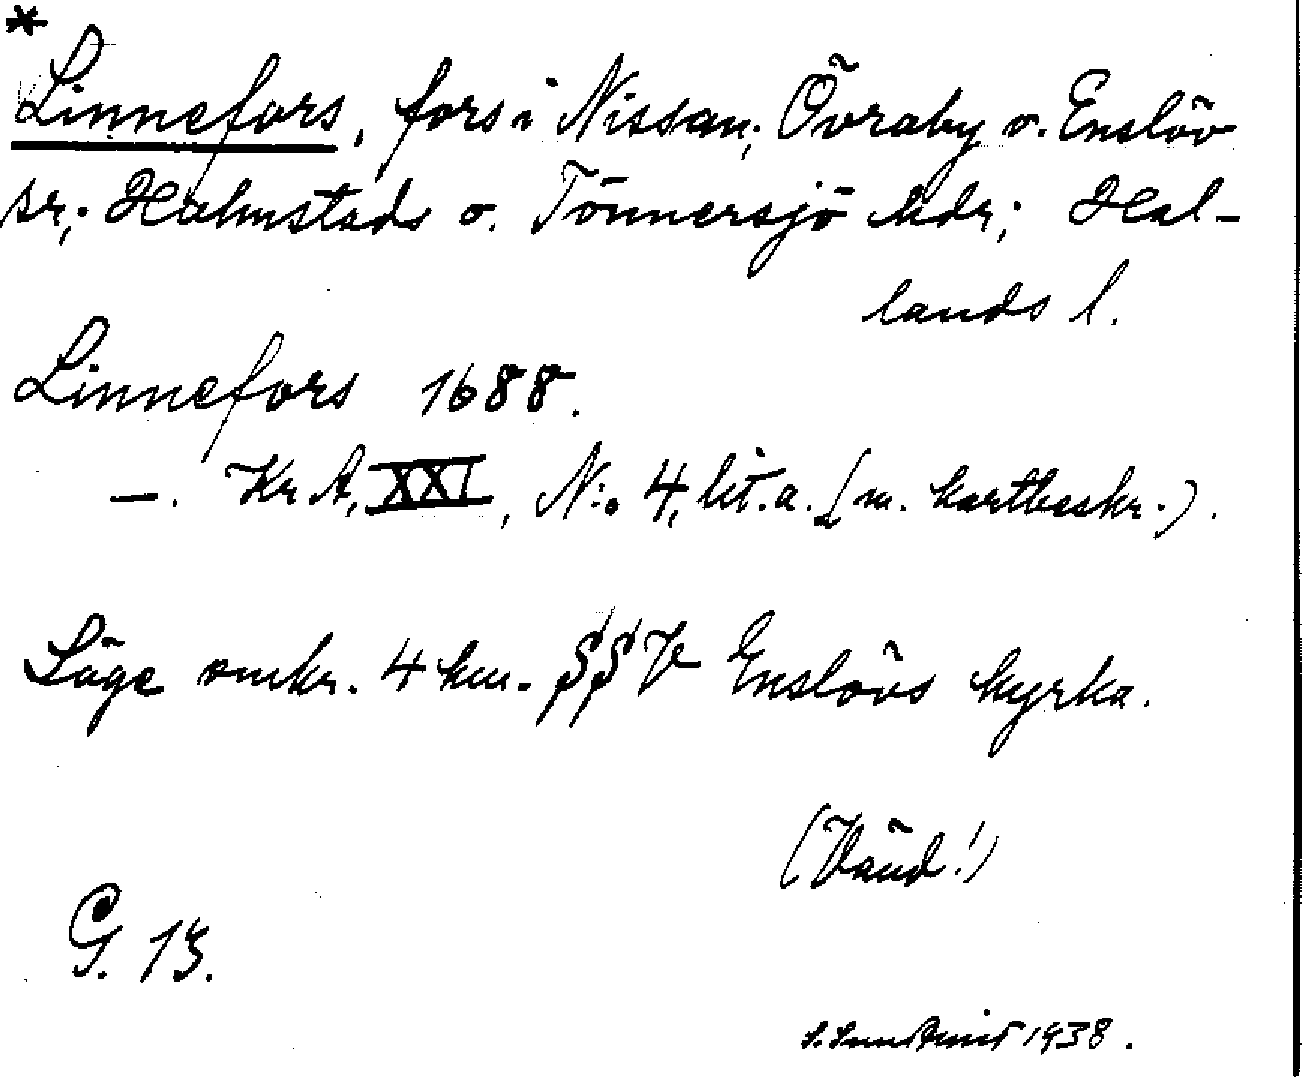 *
Linnefors, fors i Nissan; Övraby o. Enslöv
sr; Halmstads o. Tönnersjö hdr; Hal-
lands l.
Linnefors 1688.
—. Kr A, XXI, N:o 4, lit. a. (m. kartbeskr.).
Läge omkr. 4 km. SSV Enslövs kyrka.
(Vänd!)
G. 13.
1938.